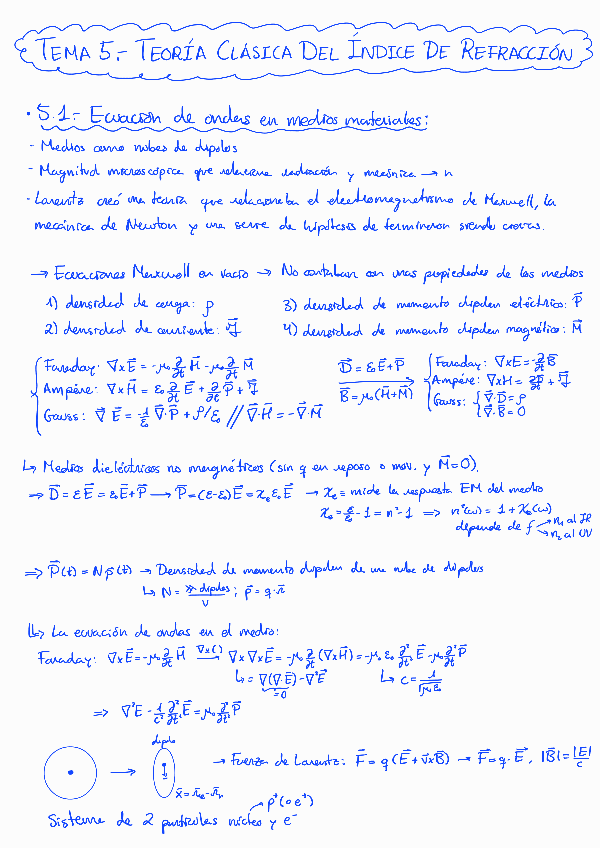 TEMA 5.- TEORÍA CLÁSICA DEL ÍNDICE DE REFRACCIÓN
· 5.1.- Ecuación de ondas en medios materiales:
- Medios como nubes de dipolos
- Magnitud microscópica que relacione radiación y mecánica → n
- Lorentz creó una teoría que relacionaba el electromagnetismo de Maxwell, la
mecánica de Newton y una serie de hipótesis de terminaron siendo ciertas.
→ Ecuaciones Maxwell en vacío → No contaban con unas propiedades de los medios
1) densidad de carga: ρ
3) densidad de momento dipolar eléctrico: P⃗
2) densidad de corriente: J⃗
4) densidad de momento dipolar magnético: M⃗
Faraday: ∇×E⃗ = -μ₀ ∂/∂t H⃗ - μ₀ ∂/∂t M⃗
Ampère: ∇×H⃗ = ε₀ ∂/∂t E⃗ + ∂/∂t P⃗ + J⃗
Gauss: ∇⃗ E⃗ = -1/ε₀ ∇⃗·P⃗ + ρ/ε₀ // ∇⃗·H⃗ = -∇⃗·M⃗
D⃗ = ε₀E⃗+P⃗
B⃗ = μ₀(H⃗+M⃗)
Faraday: ∇×E = -∂/∂t B⃗
Ampère: ∇×H = ∂D⃗/∂t + J⃗
Gauss: { ∇⃗·D⃗ = ρ
∇⃗·B⃗ = 0
↳ Medios dieléctricos no magnéticos (sin q en reposo o mov. y M⃗=0).
⇒ D⃗ = εE⃗ = ε₀E⃗+P⃗ → P⃗ = (ε-ε₀)E⃗ = χₑε₀E⃗ → χₑ ≡ mide la respuesta EM del medio
χₑ = ε/ε₀ - 1 = n² - 1 ⇒ n²(ω) = 1 + χₑ(ω)
depende de f → n₁ al IR
→ n₂ al UV
⇒ P⃗(t) = N p⃗(t) → Densidad de momento dipolar de una nube de dipolos
↳ N = nº dipolos/V ; p⃗ = q·r⃗
↳ La ecuación de ondas en el medio:
Faraday: ∇×E⃗ = -μ₀ ∂/∂t H⃗ —∇×()→ ∇×∇×E⃗ = -μ₀ ∂/∂t (∇×H⃗) = -μ₀ε₀ ∂²/∂t² E⃗ - μ₀ ∂²/∂t² P⃗
↳ = ∇(∇·E⃗) - ∇²E⃗
=0
↳ c = 1/√μ₀ε₀
⇒ ∇²E⃗ - 1/c² ∂²/∂t² E⃗ = μ₀ ∂²/∂t² P⃗
dipolo
→ Fuerza de Lorentz: F⃗ = q(E⃗+v⃗×B⃗) → F⃗ = q·E⃗, |B⃗| = |E|/c
x⃗ = r⃗ₑ - r⃗ₙ
p⁺ (o e⁺)
Sistema de 2 partículas núcleo y e⁻